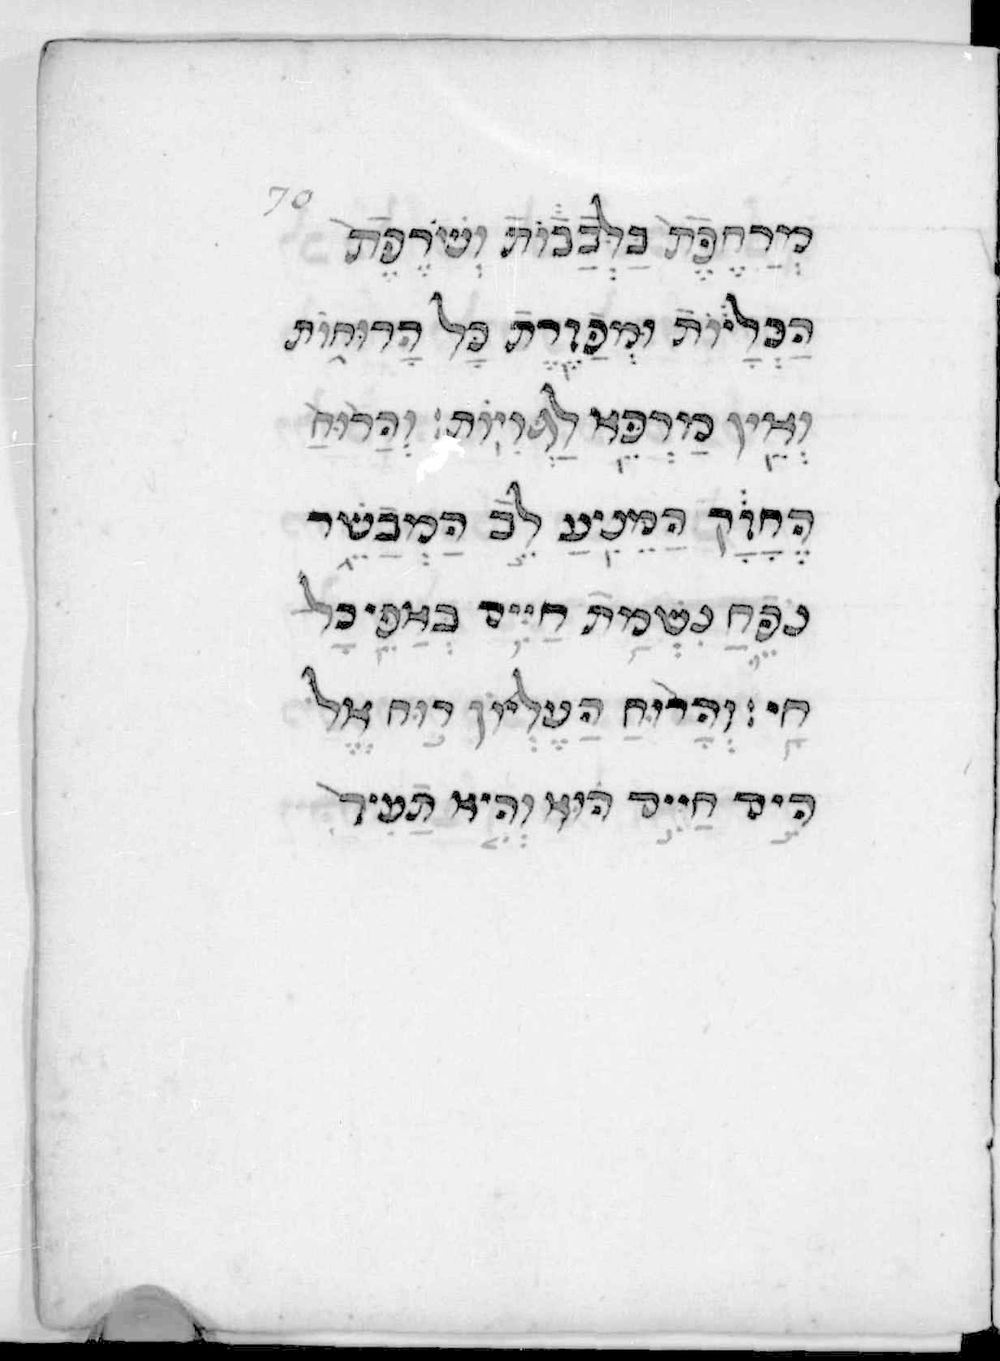 70
מְרַחֶפֶת בַּלְּבָבוֹת וְשׂרֶפֶת
הַכְּלָיוֹת וּמְקֹרֶרֶת כָּל הָרוּחוֹת
וְאֵין מַרְפֵּא לַגְּוִיוֹת: וְהָרוּחַ
הֶחָזָק הַמֵּנִיעַ לֵב הַמְבַשֵּׂר
נֹפֵחַ נִשְׁמַת חַיִּים בְּאַפֵּי כָל
חָי: וְהָרוּחַ הָעֶלְיוֹן רוּחַ אֱלֹ
הִים חַיִּים הוּא וְהָיָא תָּמִיךְ